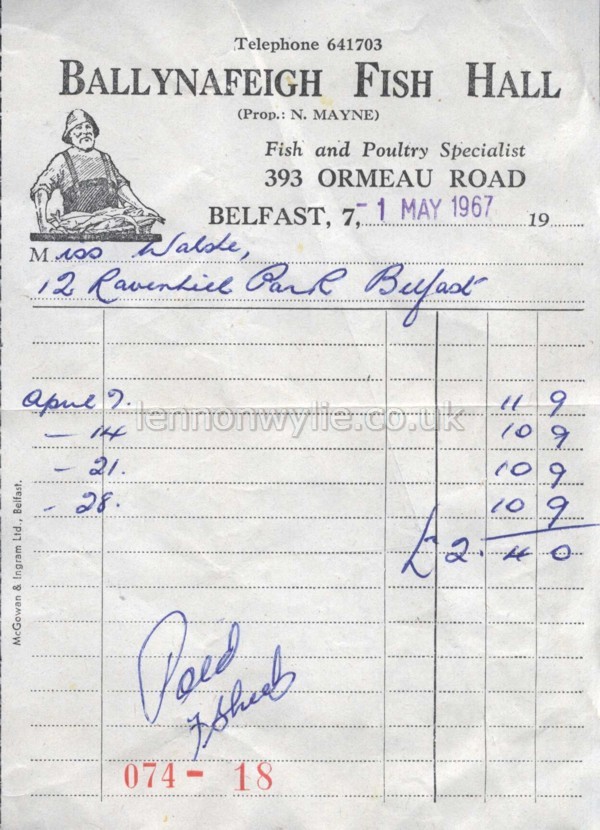 Telephone 641703
BALLYNAFEIGH FISH HALL
(Prop.: N. MAYNE)
Fish and Poultry Specialist
393 ORMEAU ROAD
BELFAST, 7, -1 MAY 1967 19
Miss Walshe,
12 Ravenhill Park Belfast
April 7. 11 9
- 14 10 9
- 21. 10 9
- 28. 10 9
£ 2. 4 0
Paid
074 - 18
McGowan & Ingram Ltd., Belfast.
lennonwylie.co.uk